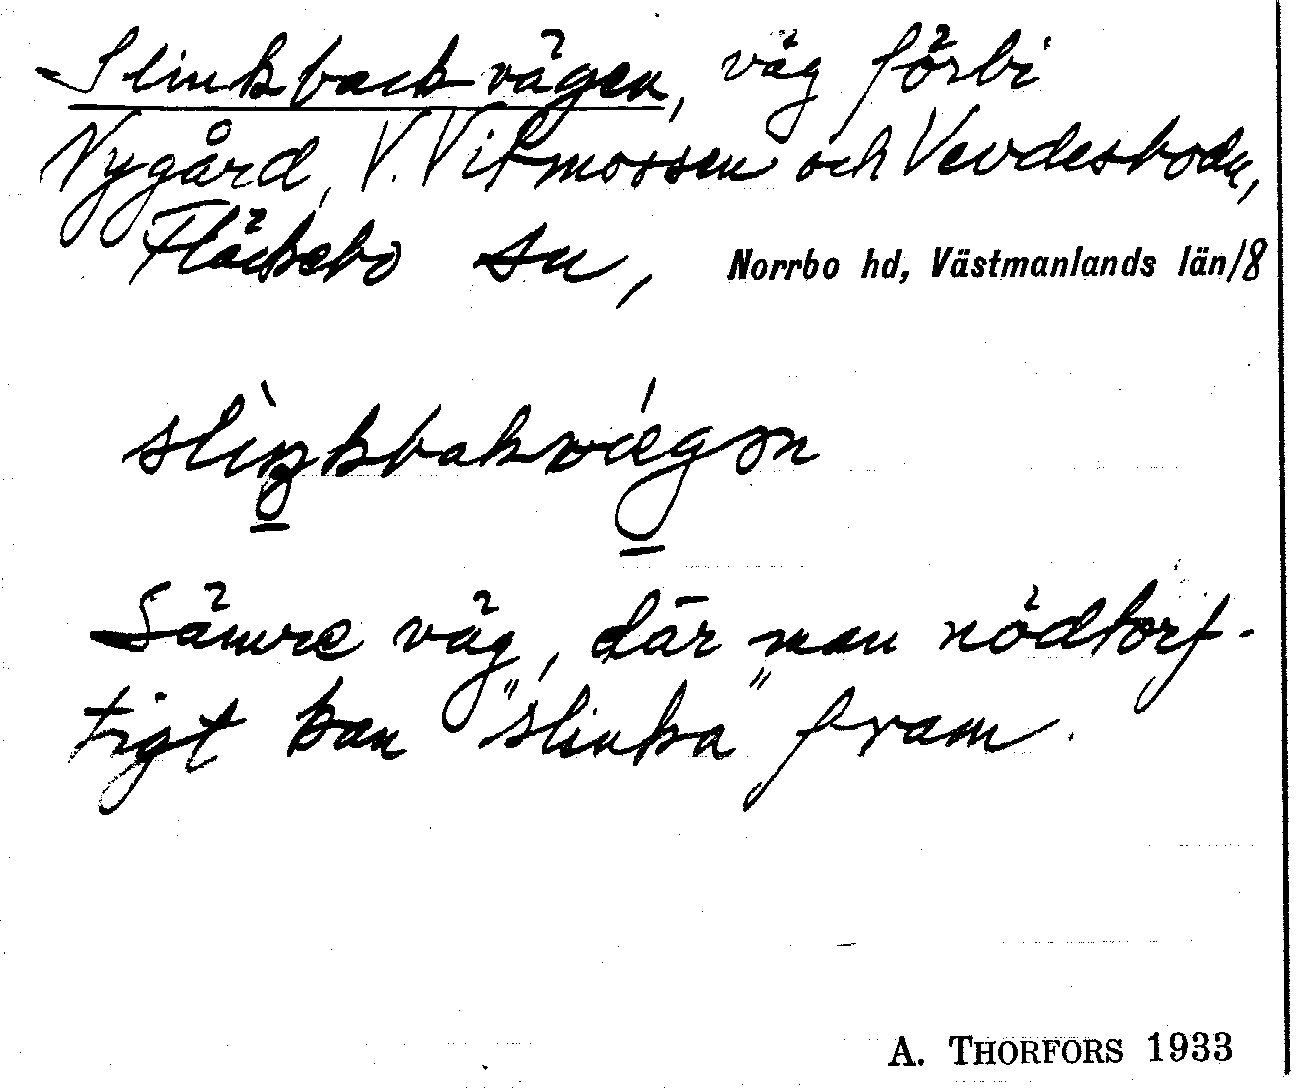 Slinkbackvägen, väg förbi
Nygård, V. Vitmossen och Verdesboda,
Fläckebo sn, Norrbo hd, Västmanlands län/8
slìŋkbakvǽgən
Sämre väg, där man nödtorf-
tigt kan "slinka" fram.
A. THORFORS 1933